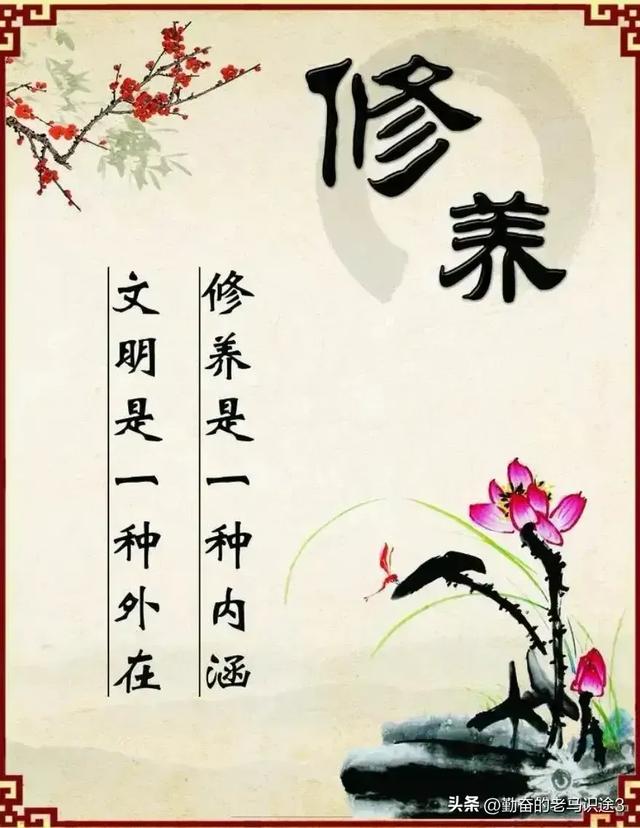 修养
修养是一种内涵
文明是一种外在
头条 @勤奋的老马识途3